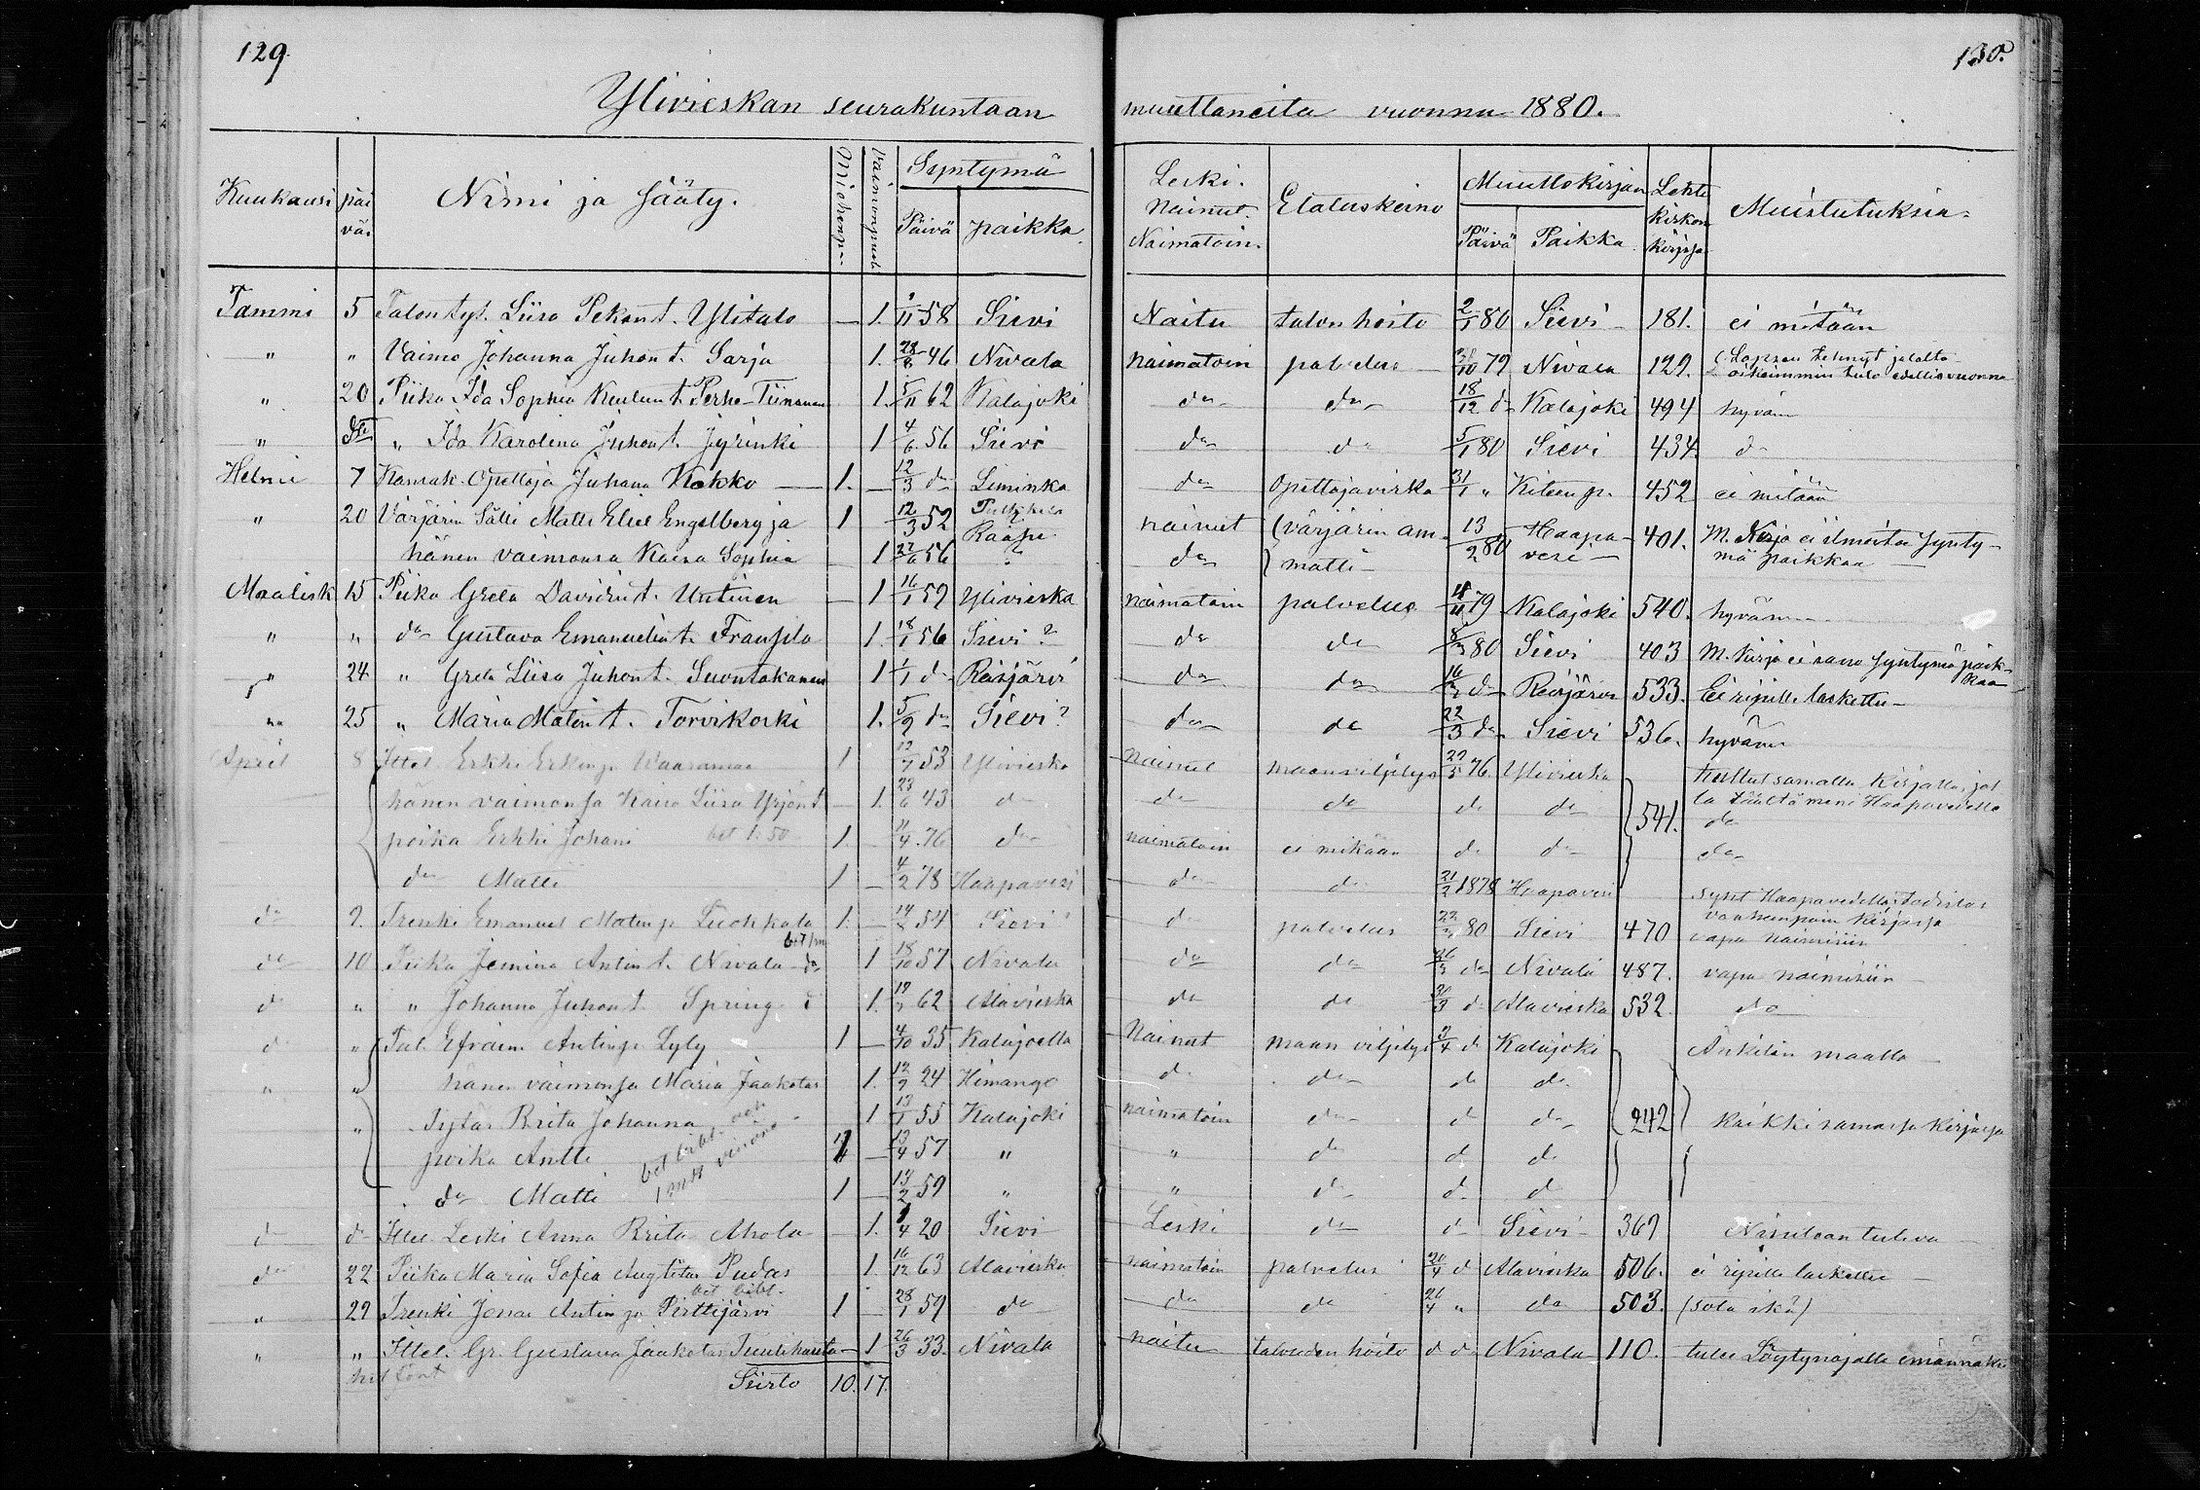 129.
130.
Ylivieskan seurakuntaan muuttaneita vuonna 1880.
Kuukausi päivä Nimi ja Sääty. Miehenp. Vaimonpuoli Syntymä Päivä paikka Leski. Nainut. Naimatoin. Elatuskeino Muuttokirjan Päivä Paikka Lehti kirkon kirjassa Muistutuksia
Tammi 5 Talon tyt. Liisa Pekan t. Ylitalo — 1. 1/11 58 Sievi Naitu talon hoito 2/1 80 Sievi 181. ei mitään
" " Vaimo Johanna Juhon t. Sarja 1. 28/8 46 Nivala naimatoin palvelus 79 Nivala 129. Lapsen tehnyt oikeimmin tulo
" 20 Piika Ida Sophia t. Perhe-Tiinanen 1. 5/11 62 Kalajoki do do 18/12 do Kalajoki 494 hyvän
" do " Ida Karolina Juhon t. Jyrinki 1 4/6 56 Sievi do do 5/1 80 Sievi 434. do
Helmi 7 Kansak. Opettaja Juhana Kokko — 1. — 12/3 do Liminka do Opettajavirka 31/1 " Kiteen p. 452 ei mitään
" 20 Värjärin Sälli Matti Eliel Engelberg ja 1 12/3 52 Raahe nainut (värjärin am- 13/2 80 Haapa- 401. M. Kirja ei ilmoita synty-
hänen vaimonsa Kaisa Sophia — 1 27/6 56 " do matti vesi mä paikkaa
Maalisk 15 Piika Greta Davidin t. Untinen — 1 16/1 59 Ylivieska naimatoin palvelus 79 Kalajoki 540. hyvän
" " do Gustava Emanuelin t. Fransila 1. 18/1 56 Sievi? do do 80 Sievi 403 M. Kirja ei sano syntymä paikkaa
" 24 " Greta Liisa Juhon t. Suontakanen 1 1/1 do Reisjärvi do do 16/3 do Reisjärvi 533. Ei ripille laskettu
" 25 " Maria Matin t. Torvikoski 1. 5/9 do Sievi? do do 22/3 do Sievi 536. hyvän
April 8 Ittel. Erkki Erkinp. Waaramaa 1 12/7 53 Ylivieska nainut maanviljelys 76 Ylivieska tullut samalla kirjalla, jol-
hänen vaimonsa Kaisa Liisa Yrjön t — 1. 23/6 43 do do do do do 541. la täältä meni Haapavedelle
poika Erkki Johani bet 1:50 1. — 11/4 76 do naimatoin ei mikään do do do
do Matti 1 — 4/2 78 Haapavesi do do 21/2 1878 Haapavesi do
do 9. Trenki Emanuel Matinp 1. — 14/2 54 Sievi? do palvelus 22/3 80 Sievi 470 synt Haapavedellä, vanhempain kirjassa vapa naimisiin
do 10 Piika Jemina Antin t. Nivala do 1 18/10 57 Nivala do do 26/3 do Nivala 487. vapa naimisiin
do " " Johanna Juhon t. Spring do 1. 62 Alavieska do do 30/3 do Alavieska 532 do
do " Tal. Efraim Antinp Lyly 1 — 4/10 35 Kalajoella Nainut maan viljelys 3/4 do Kalajoki maalla
" " hänen vaimonsa Maria Jaakotar 1. 24 Himango do do do do
" Tytär Brita Johanna 1 13/1 55 Kalajoki naimatoin do do do 242 Kaikki samassa kirjassa
poika Antti 1 — 13/4 57 " " do do do
do Matti 1 — 13/2 59 " " do do do
do do Ittel. Leski Anna Brita Ahola 1. 4 20 Sievi Leski do do Sievi 369
do 22 Piika Maria Sofia Aug.tytär Pudas 1. 16/12 63 Alavieska naimatoin palvelus 20/4 do Alavieska 506. ei ripille laskettu
" 29 Trenki Jonas Antin p. Pirttijärvi 1 — 28/1 59 do do do 26/4 " do 503.
" " Ittel. Gr. Gustava Jaakotar Tuulihauta — 1 26/3 33. Nivala naitu talouden hoito do do Nivala 110. tulee Löytynojalle emännäksi
Siirto 10. 17.